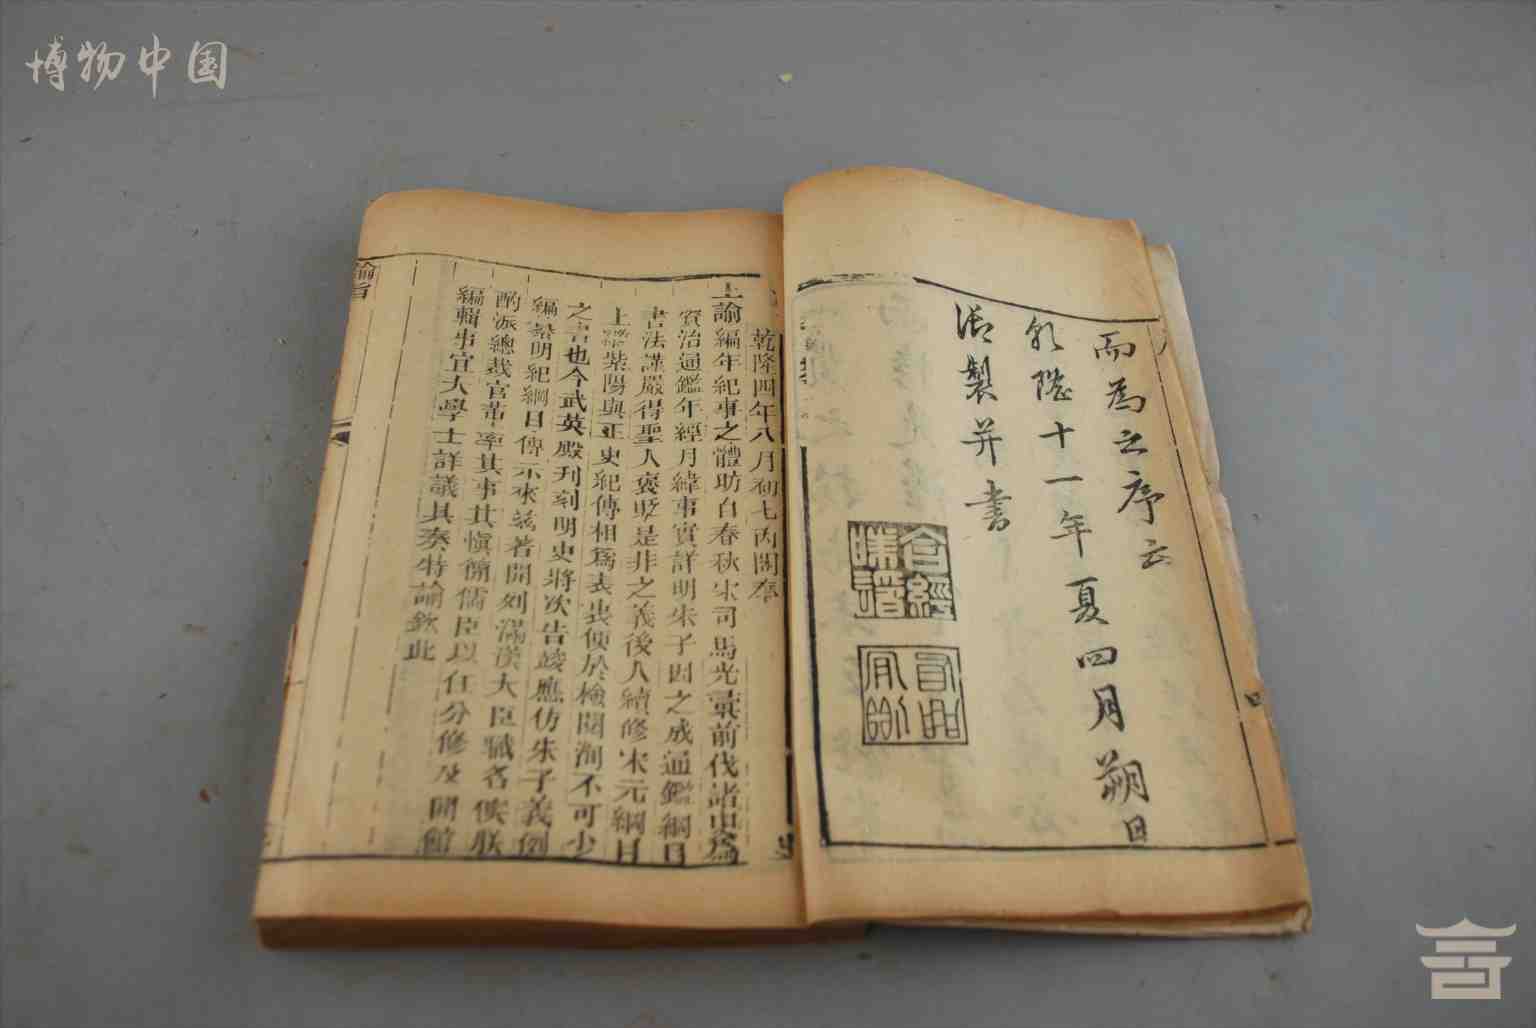 博物中国
而為之序云
乾隆十一年夏四月朔日
御製并書
合經
味道
乾隆四年八月初七內閣奉
上諭編年紀事之體昉自春秋宋司馬光彚前代諸史爲
資治通鑑年經月緯事實詳明朱子因之成通鑑綱目
書法謹嚴得聖人褒貶是非之義後人續修宋元綱目
上繼紫陽與正史紀傳相爲表裏便於檢閱洵不可少
之書也今武英殿刊刻明史將次告竣應仿朱子義例
編纂明紀綱目傳示來茲著開列滿漢大臣職名候朕
酌派總裁官董率其事其慎簡儒臣以任分修及開館
編輯事宜大學士詳議具奏特諭欽此
諭旨